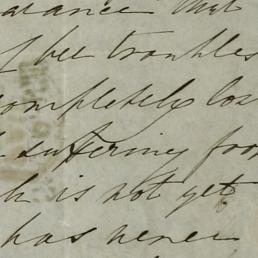 that
of bee troubles
completely los
suffering from
is not yet
has never